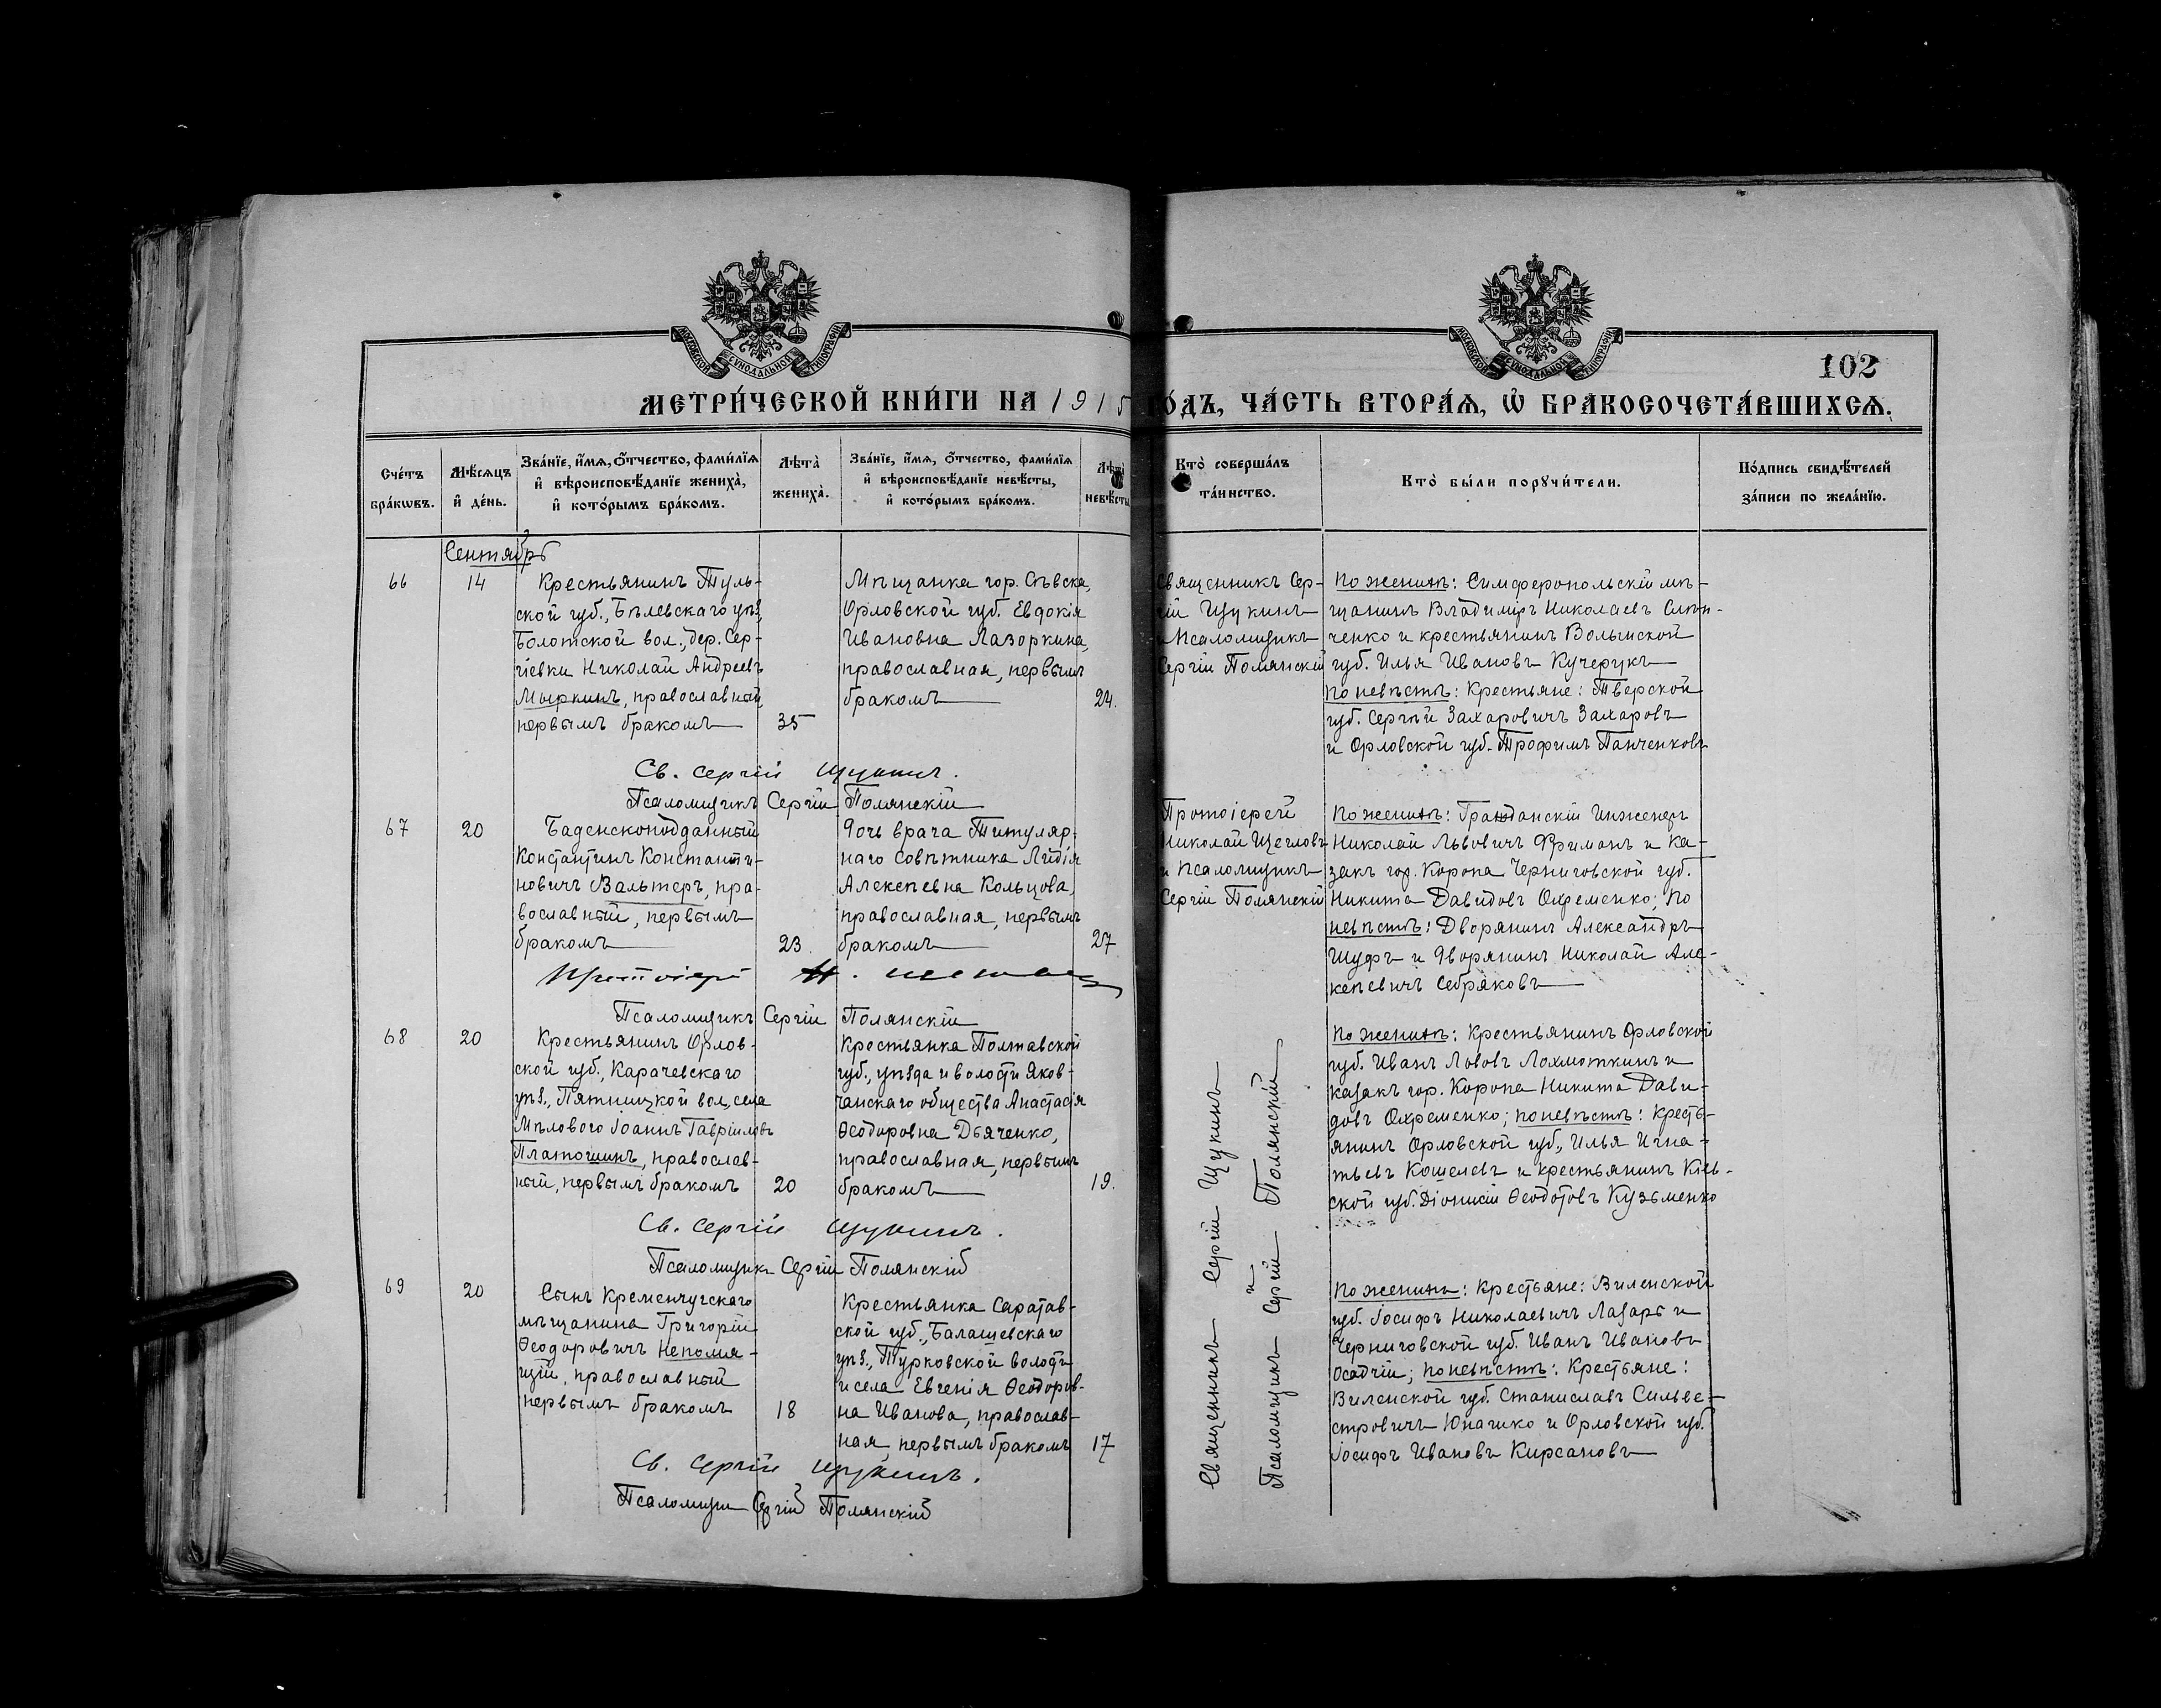 МОСКОВСКОЙ СѴНОДАЛЬНОЙ ТИПОГРАФІИ
МОСКОВСКОЙ СѴНОДАЛЬНОЙ ТИПОГРАФІИ
102
МЕТРИ́ЧЕСКОЙ КНИ́ГИ НА 1915 ГО́ДЪ, ЧА́СТЬ ВТОРА́Ѧ, Ѽ БРАКОСОЧЕТА́ВШИХСѦ.
Сче́тъ бра́кѡвъ.
Мѣ́сѧцъ и҆ де́нь.
Зва́нїе, и҆́мѧ, ѻ҆́тчество, фами́лїѧ
и҆ вѣроисповѣ́данїе жениха̀,
и҆ кото́рымъ бра́комъ.
Лѣта̀ жениха̀.
Зва́нїе, и҆́мѧ, ѻ҆́тчество, фами́лїѧ
и҆ вѣроисповѣ́данїе невѣ́сты,
и҆ кото́рымъ бра́комъ.
Лѣта̀ невѣ́сты
Кто̀ соверша́лъ
та́инство.
Кто̀ бы́ли порꙋчи́тели.
По́дпись свидѣ́телей
за́писи по жела́нїю.
Сентябрь
66
14
Крестьянинъ Туль-
ской губ., Бѣлевскаго уѣз.,
Болотской вол., дер. Сер-
гіевки Николай Андреевъ
Мыркинъ, православный,
первымъ бракомъ
35
Мѣщанка гор. Сѣвска,
Орловской губ. Евдокія
Ивановна Лазоркина,
православная, первымъ
бракомъ
24.
Священникъ Сер-
гій Щукинъ
и Псаломщикъ
Сергій Полянскій
По женихѣ: Симферопольскій мѣ-
щанинъ Владимиръ Николаевъ Слѣп-
ченко и крестьянинъ Волынской
губ. Илья Ивановъ Кучерукъ
по невѣстѣ: Крестьяне: Тверской
губ. Сергѣй Захаровичъ Захаровъ
и Орловской губ. Трофимъ Панченковъ
Св. Сергій Щукинъ.
Псаломщикъ Сергій Полянскій
67
20
Баденскоподданный
Константинъ Константи-
новичъ Вальтеръ, пра-
вославный, первымъ
бракомъ
23.
Дочь врача Титуляр-
наго Совѣтника Лидія
Алексѣевна Кольцова,
православная, первымъ
бракомъ
27
Протоіерей
Николай Щегловъ
и Псаломщикъ
Сергій Полянскій
По женихѣ: Гражданскій Инженеръ
Николай Львовичъ Фриманъ и Ка-
закъ гор. Коропа Черниговской губ.
Никита Давидовъ Охременко; По
невѣстѣ: Дворянинъ Александръ
Шуфъ и Дворянинъ Николай Але-
ксѣевичъ Себряковъ
Протоіерей Н. Щегловъ
Псаломщикъ Сергій Полянскій
68
20
Крестьянинъ Орлов-
ской губ., Карачевскаго
уѣз., Пятницкой вол., села
Мѣлового Іоаннъ Гавріиловъ
Платошинъ, православ-
ный, первымъ бракомъ
20
Крестьянка Полтавской
губ., уѣзда и волости Яков-
чанскаго общества Анастасія
Ѳеодоровна Дьяченко,
православная, первымъ
бракомъ
19.
По женихѣ: Крестьянинъ Орловской
губ. Иванъ Львовъ Лохмоткинъ и
казакъ гор. Коропа Никита Дави-
довъ Охременко; по невѣстѣ: Кресть-
янинъ Орловской губ., Илья Игна-
тьевъ Кошелевъ и крестьянинъ Кіев-
ской губ. Діонисій Ѳеодотовъ Кузьменко
Св. Сергій Щукинъ.
Псаломщикъ Сергій Полянскій
69
20
Сынъ Кременчугскаго
мѣщанина Григорій
Ѳеодоровичъ Непомя-
щій, православный
первымъ бракомъ
18
Крестьянка Саратов-
ской губ., Балашевскаго
уѣз., Турковской волости
и села Евгенія Ѳеодоров-
на Иванова, православ-
ная первымъ бракомъ
17
Священникъ Сергій Щукинъ
и
Псаломщикъ Сергій Полянскій
По женихѣ: Крестьяне: Виленской
губ. Іосифъ Николаевичъ Лазарь и
Черниговской губ. Иванъ Ивановъ
Осадчій; по невѣстѣ: Крестьяне:
Виленской губ. Станиславъ Сильве-
стровичъ Юнашко и Орловской губ.
Іосифъ Ивановъ Кирсановъ
Св. Сергій Щукинъ.
Псаломщикъ Сергій Полянскій